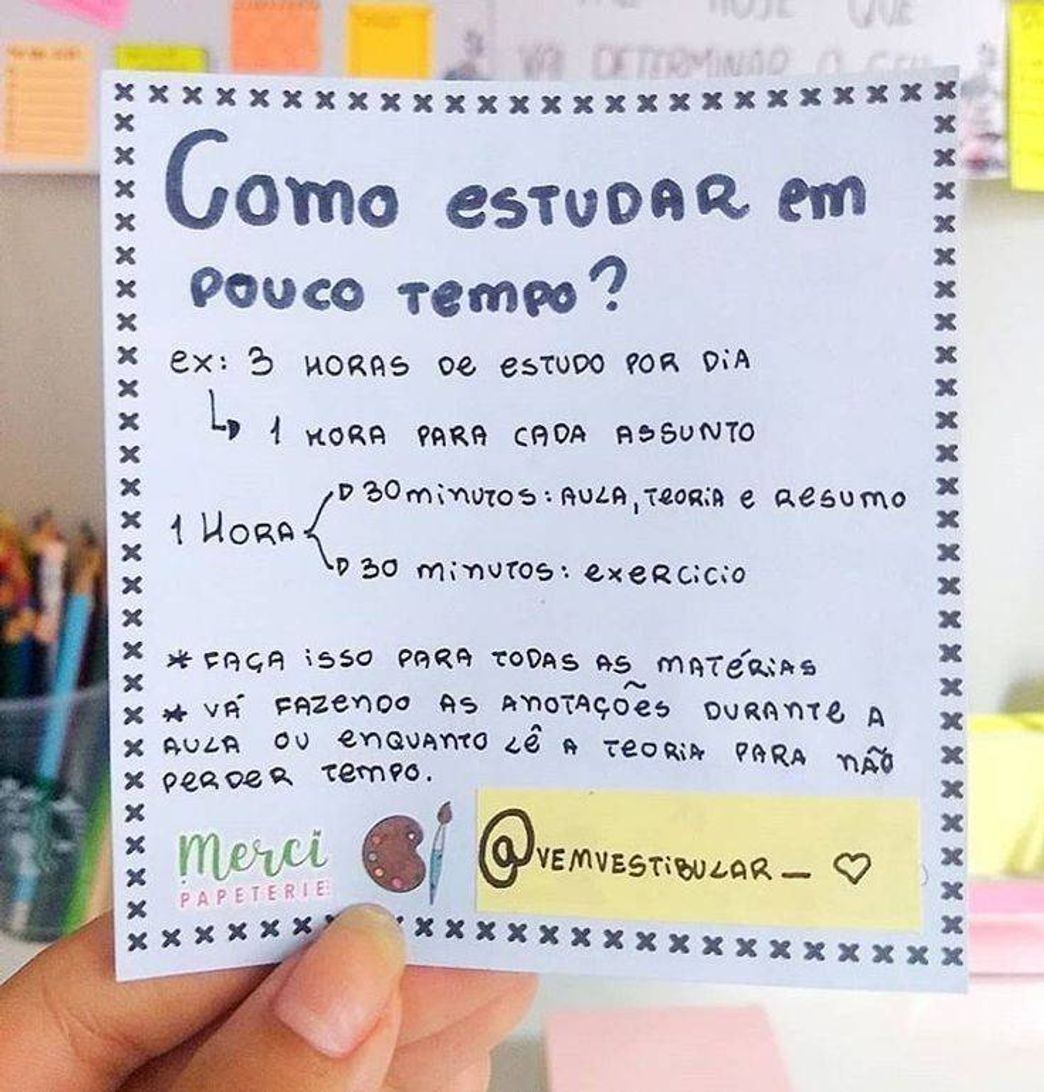 HOJE QUE
VAI DETERMINAR O SEU
Como ESTUDAR em
POUCO TEMPO?
ex: 3 HORAS De ESTUDO POR DiA
1 HORA PARA CADA ASSUNTO
30 minutos: AULA, TEORIA e RESUMO
1 HORA
30 minutos: exeRcicio
* FAÇA iSSO PARA TODAS AS MATÉRiAS
* VÁ FAZENDO AS ANOTAÇÕES DURANTE A
AULA OU enQUANTO LÊ A TEORIA PARA NÃO
PERDER TEMPO.
Merci
PAPETERIE
@VEMVESTiBULAR_